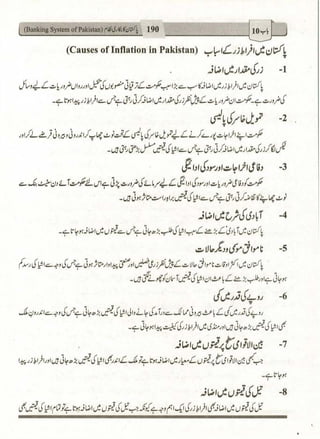 باب10 190 پاکستان کا بینکاری نظام (Banking System of Pakistan)
پاکستان میں افراطِ زر کے اسباب (Causes of Inflation in Pakistan)
1- زر کی مقدار میں اضافہ
پاکستان میں افراطِ زر میں اضافہ کا سب سے بڑا سبب حکومت کے ترقیاتی منصوبوں کی تکمیل اور رواں ضروریات کے لیے وسائل
کی ضرورت ہے۔ حکومت ان ضروریات کے پیش نظر زر کی مقدار میں اضافہ کرتی رہتی ہے جس سے افراطِ زر پیدا ہوتا ہے۔
2- تمویل خاسر کی پالیسی
حکومت اپنے اخراجات پورے کرنے کے لیے تمویل خاسر کی پالیسی کے تحت نوٹ چھاپ کر اندرونی و بیرونی قرضے لے کر اور
ٹیکس لگا کر زر کی مقدار میں اضافہ کرتی رہتی ہے جس سے اشیا کی قیمتیں مسلسل بڑھتی رہتی ہیں۔
3- دفاعی اخراجات اور سود کی ادائیگی
حکومت کو دفاعی ضروریات اور سود کی ادائیگی کے لیے سرمائے کی ضرورت پڑتی ہے اس لیے حکومت آئے دن سٹیٹ بینک سے
نوٹ چھاپنے کا تقاضا کرتی رہتی ہے جس سے اشیا کی قیمتیں براہ راست متاثر ہوتی ہیں۔
4- آبادی کی شرح میں اضافہ
پاکستان میں آبادی کے بڑھنے کے سبب اشیا کی طلب بڑھ جاتی ہے جس سے قیمتوں میں اضافہ ہو جاتا ہے۔
5- ناموافق موسمی و دیگر حالات
پاکستان میں اکثر اوقات ناموافق حالات کے پیش نظر زرعی فصلیں اور صنعتی پیداوار متاثر ہوتی ہے جس کی وجہ سے اشیا کی رسد کم
ہو جاتی ہے اور طلب بڑھنے کے باعث ان اشیا کی قیمتیں آسمان کو چھونے لگتی ہیں۔
6- روپے کی قدر میں کمی
روپے کی قدر میں کمی کے باعث بیرونی ممالک سے درآمد کی جانے والی اشیا کی قیمتیں بڑھ جاتی ہیں جس کی وجہ سے اندرون ملک
بھی اشیا کی قیمتیں بڑھ جاتی ہیں اور منڈی میں افراطِ زر کی کیفیت پیدا ہو جاتی ہے۔
7- بین الاقوامی سطح پر قیمتوں میں اضافہ
جب بھی بین الاقوامی سطح پر قیمتوں کے معیار میں اضافہ ہوتا ہے تو ملک کے اندر بھی اشیا کی قیمتیں بڑھ جاتی ہیں اور افراطِ زر پیدا
ہو جاتا ہے۔
8- تیل کی قیمتوں میں اضافہ
تیل کی قیمتوں میں اضافہ بھی افراطِ زر کی ایک اہم وجہ ہے کیونکہ جب تیل کی قیمتوں میں اضافہ ہوتا ہے تو تمام اشیا کی قیمتیں بھی